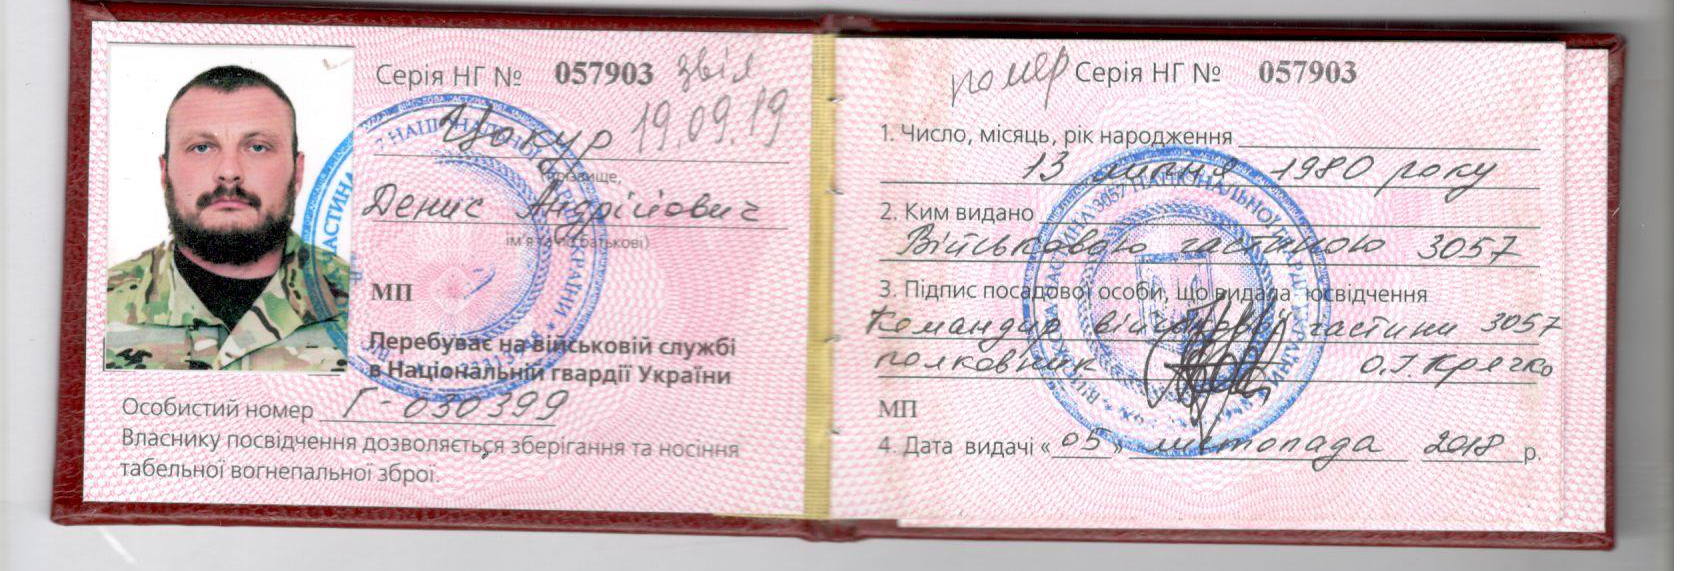 Серія НГ № 057903 звіл
19.09.19
Цокур
прізвище,
Денис Андрійович
ім'я та по батькові)
МП
Перебуває на військовій службі
в Національній гвардії України
Особистий номер Г-030399
Власнику посвідчення дозволяється зберігання та носіння
табельної вогнепальної зброї.
помер Серія НГ № 057903
1. Число, місяць, рік народження
13 липня 1980 року
2. Ким видано
Військовою частиною 3057
3. Підпис посадової особи, що видала посвідчення
Командир військової частини 3057
полковник О.І. Крячко
МП
4. Дата видачі «05» листопада 2018 р.